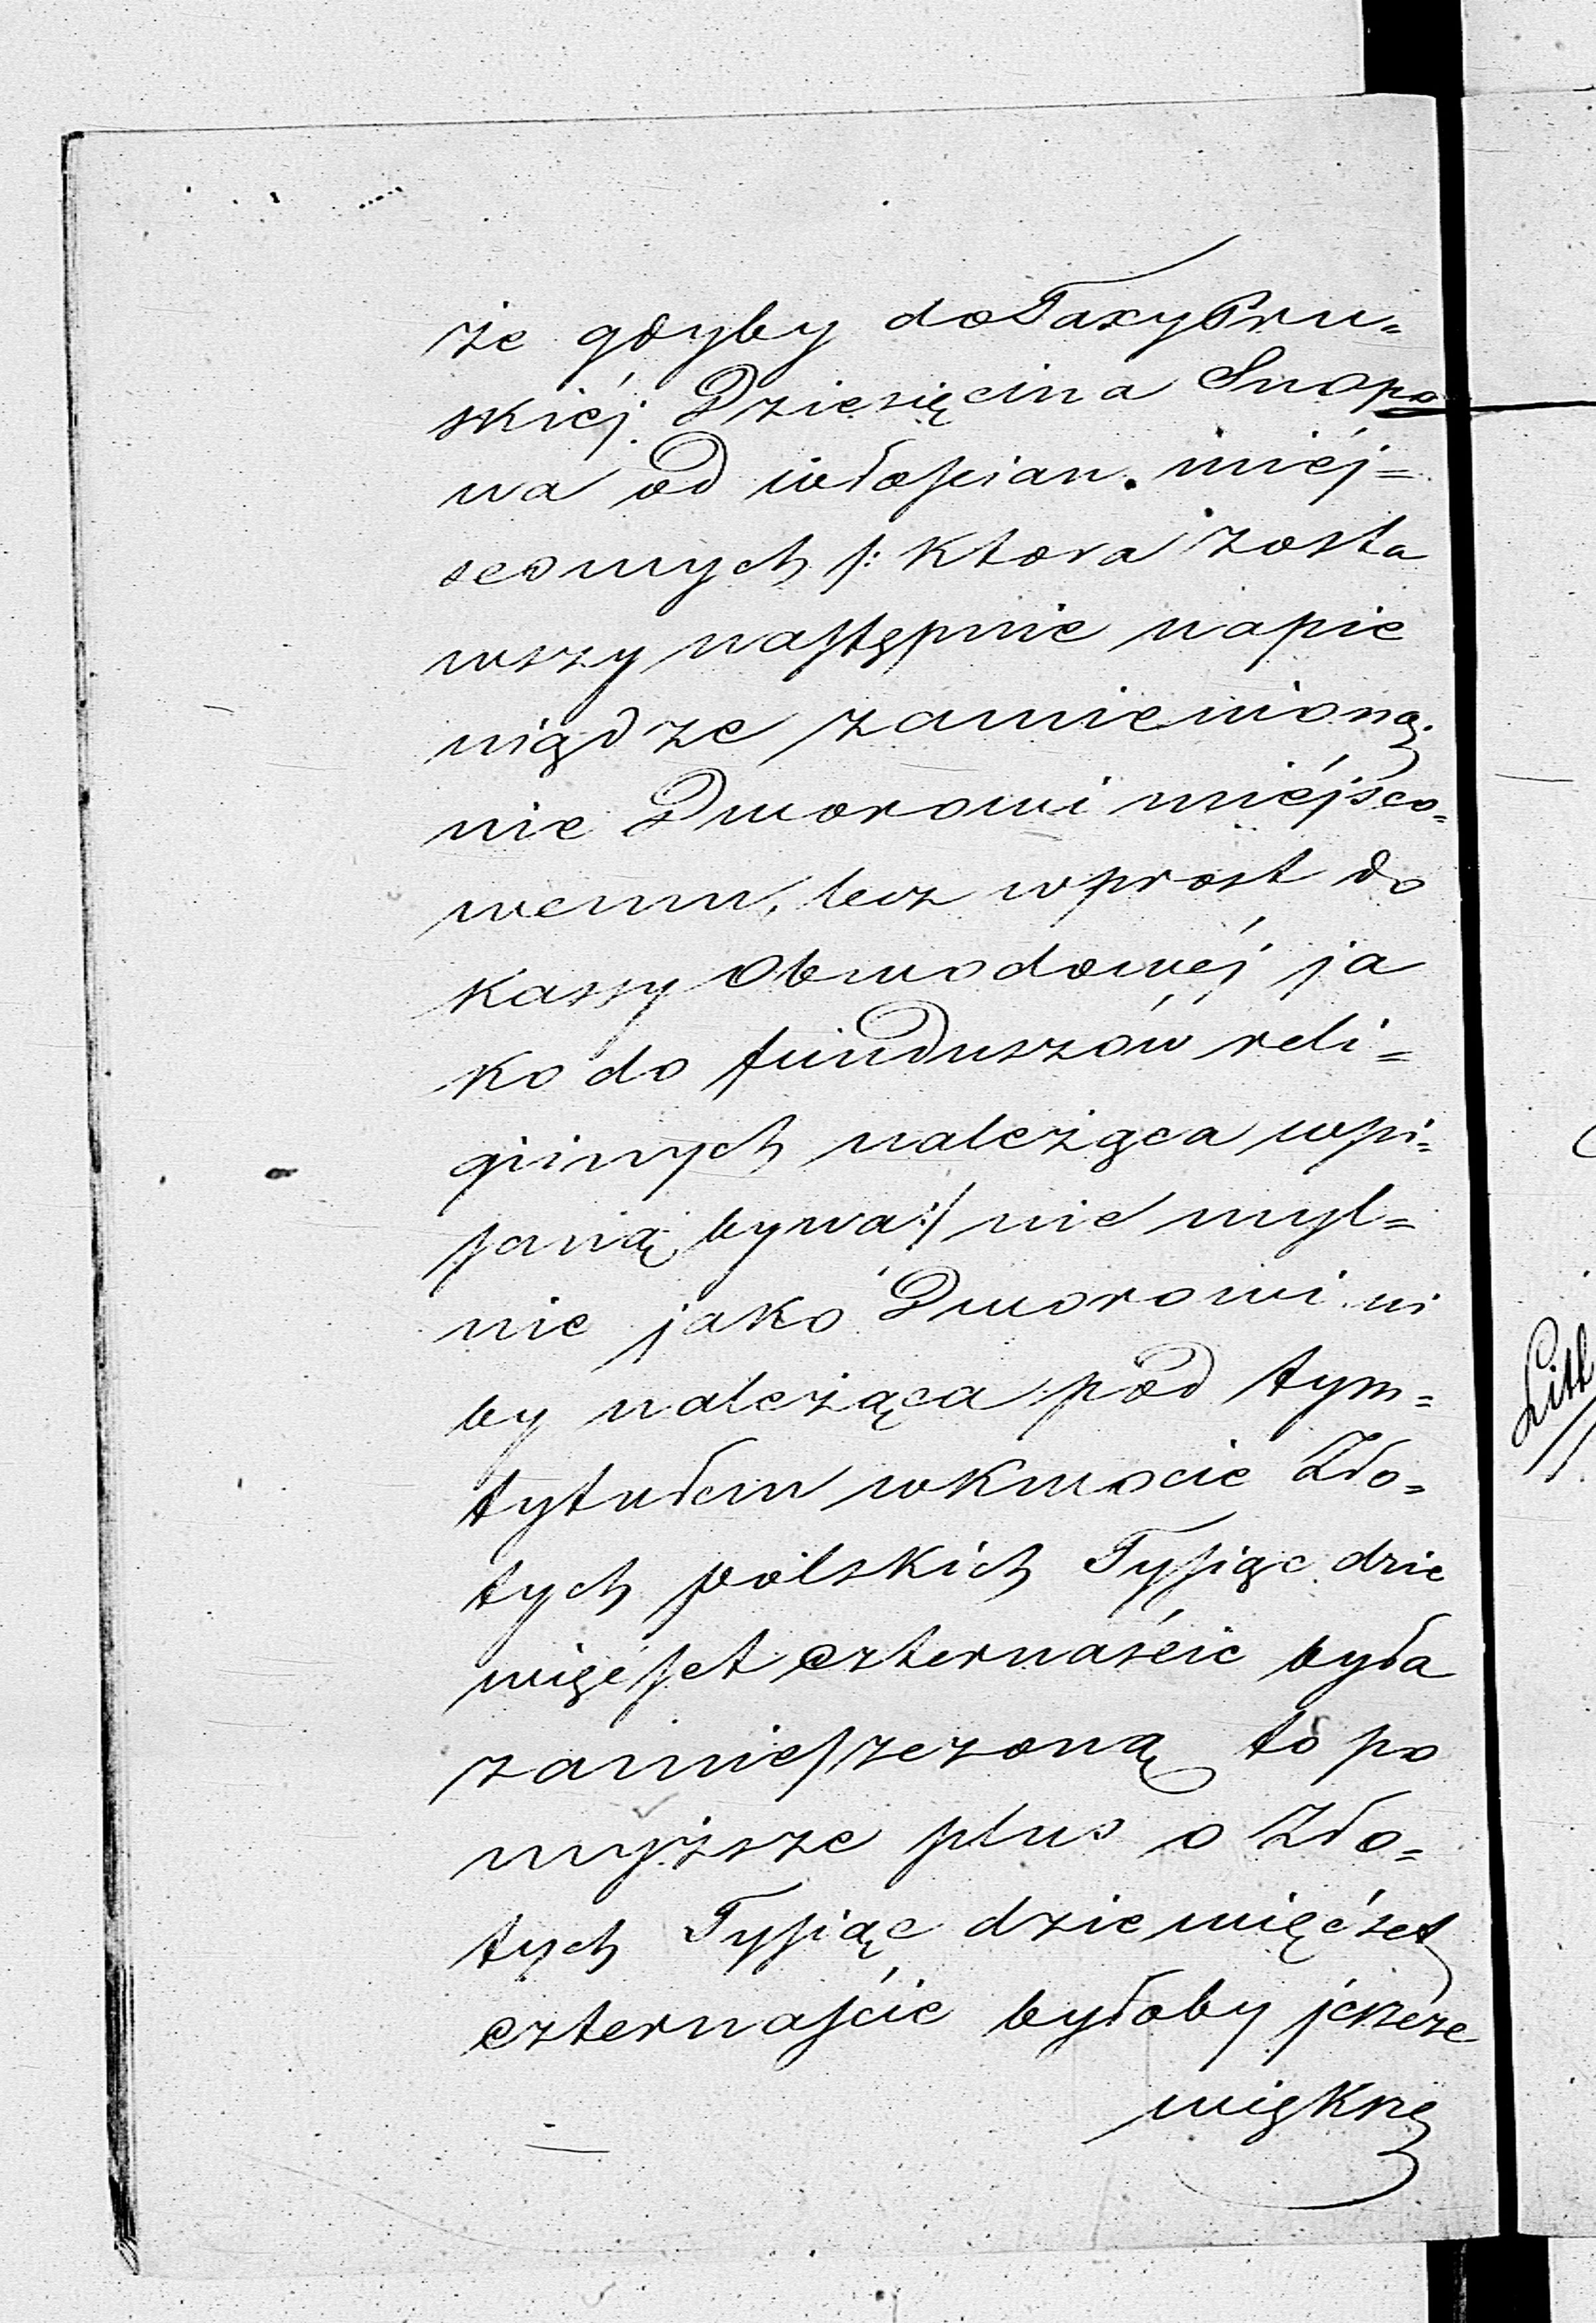 że gdyby do Taxy Pru-
skiéj Dziesięcina Snopo
wa od włościan miéj-
scowych /: ktora zosta
wszy następnie na pie
niądze zamienioną
nie Dworowi miéjsco-
wemu, lecz wprost do
Kassy Obwodowéj ja
ko do funduszów reli-
giinych należąca wpi-
saną bywa :/ nie myl-
nie jako Dworowi ni
by należąca pod tym-
tytułem w kwocie Zło-
tych polskich Tysiąc dzie
więćset czternaście była
zamieszczoną to po
wyższe plus o Zło-
tych Tysiąc dziewięćset
czternaście byłoby jeszcze
większe
Litt